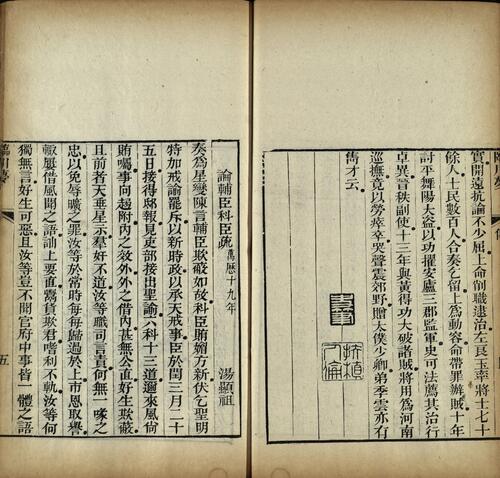 實開遠抗論不少屈上命削職逮治左良玉率將士七十
餘人士民數百人合奏乞留上爲動容命帶罪辦賊十年
討平舞陽大盜以功擢安廬三郡監軍史可法薦其治行
卓異晉秩副使十三年與黃得功大破諸賊將用爲河南
巡撫竟以勞瘁卒哭聲震郊野贈太僕少卿弟季雲亦有
雋才云
論輔臣科臣疏 萬曆十九年
湯顯祖
奏爲星變陳言輔臣欺蔽如故科臣賄媚方新伏乞聖明
特加戒諭罷斥以新時政以承天戒事臣於閏三月二十
五日接得邸報見吏部接出聖諭六科十三道邇來風尙
賄囑事向趨附內之效外外之借內甚無公直好生欺蔽
且前者天垂星示羣好不道汝等職司言責何無一喙之
忠以免辱曠之罪汝等於常時每每歸過於上市恩取譽
輒屢借風聞之語訕上要直鬻貨欺君嗜利不軌汝等何
獨無言好生可惡且汝等豈不聞宮府中事皆一體之語
五